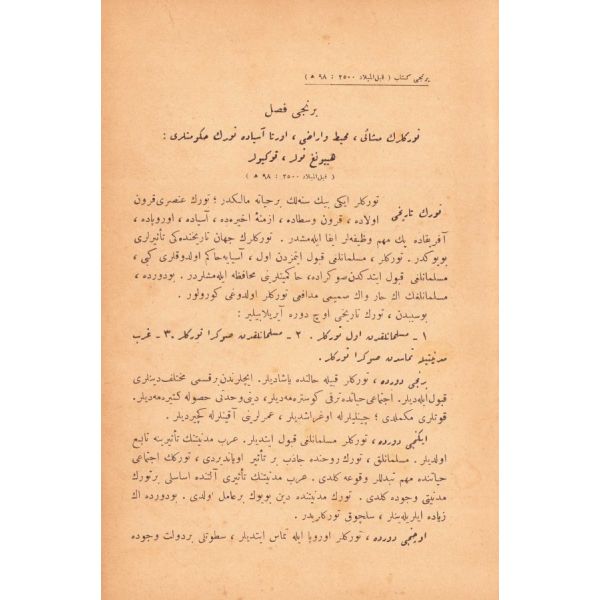 برنجی كتاب ( قبل‌الميلاد ٢٥٠٠ : ٩٨ ﻫ )
برنجی فصل
توركلرك منشائی ، محيط و اراضی ، اورتا آسياده تورك حكومتلری :
هيونغ نولر ، توكيولر
( قبل‌الميلاد ٢٥٠٠ : ٩٨ ﻫ )
تورك تاريخی
توركلر ايكی بيك سنه‌لك برحياته مالكدر ؛ تورك عنصری قرون
اولاده ، قرون وسطاده ، ازمنهٔ اخيره‌ده ، آسياده ، اوروپاده ،
آفريقاده پك مهم وظيفه‌لر ايفا ايله‌مشدر . توركلرك جهان تاريخنده‌كی تأثيرلری
بويوكدر . توركلر ، مسلمانلغی قبول ايتمزدن اول ، آسيايه حاكم اولدوقلری كبی ،
مسلمانلغی قبول ايتدكدن صوكراده ، حاكميتلرينی محافظه ايله‌مشلردر . بودورده ،
مسلمانلغك اك حار واك صميمی مدافعی توركلر اولدوغی كورولور .
بوسببدن ، تورك تاريخی اوچ دوره آيريلابيلير :
١ ـ مسلمانلقدن اول توركلر . ٢ ـ مسلمانلقدن صوكرا توركلر . ٣ ـ غرب
مدنيتيله تماسدن صوكرا توركلر .
برنجی دورده ، توركلر قبيله حالنده ياشاديلر . ايچلرندن برقسمی مختلف دينلری
قبول ايله‌ديلر . اجتماعی حياتده ترقی كوستره‌مه‌ديلر ، دينی وحدتی حصوله كتيره‌مه‌ديلر .
قوتلری مكملدی ؛ چينليلرله اوغراشديلر ، عمرلرينی آقينلرله كچيرديلر .
ايكنجی دورده ، توركلر مسلمانلغی قبول ايتديلر . عرب مدنيتنك تأثيرينه تابع
اولديلر . مسلمانلق ، تورك روحنده جاذب بر تأثير اوياندیردی ، توركلك اجتماعی
حياتنده مهم تبدللر وقوعه كلدی . عرب مدنيتنك تأثيری آلتنده اساسلی برتورك
مدنيتی وجوده كلدی . تورك مدنيتنده دين بويوك برعامل اولدی . بودورده اك
زياده ايلريله‌ينلر ، سلچوق توركلريدر .
اوچنجی دورده ، توركلر اوروپا ايله تماس ايتديلر ، سطوتلی بردولت وجوده